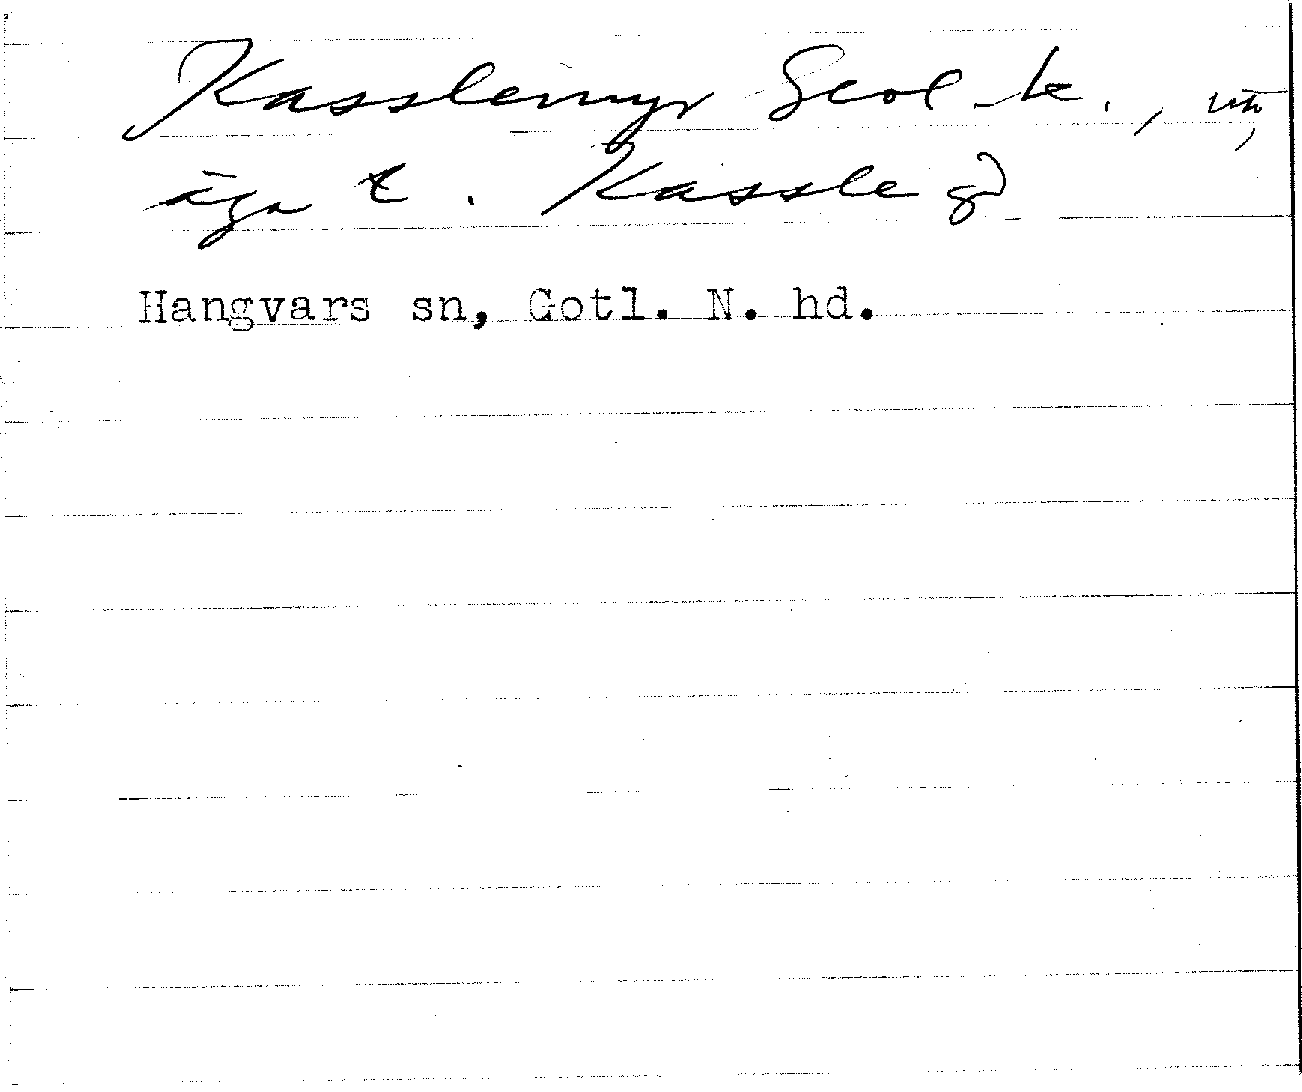 Kasslemyr Geol. k.,
äga t. Kassle gd
Hangvars sn, Gotl. N. hd.